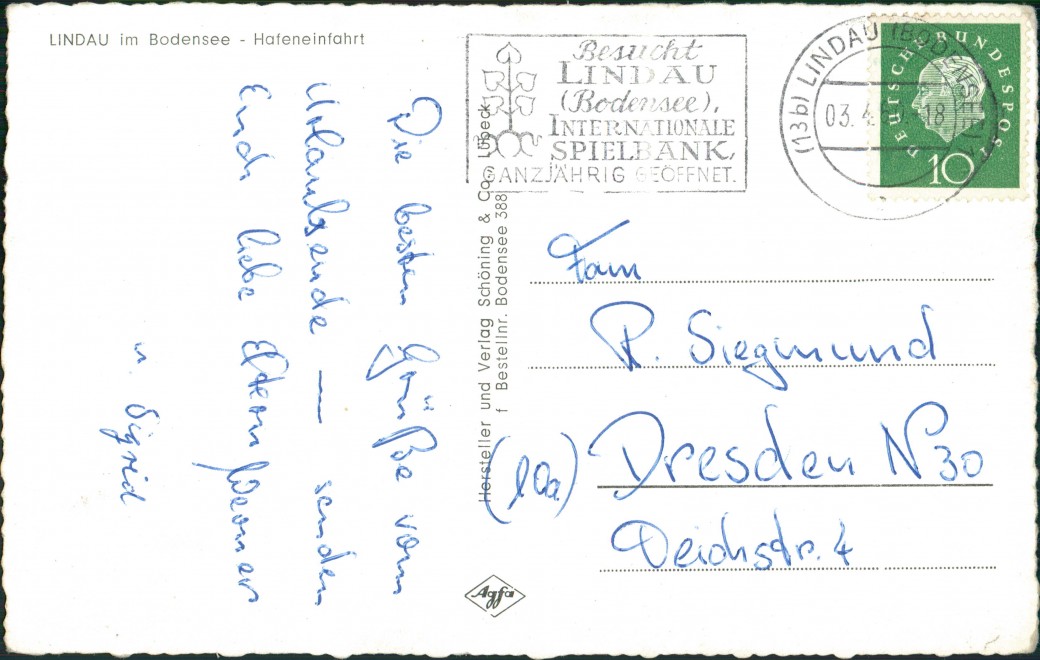 LINDAU im Bodensee - Hafeneinfahrt
Besucht
LINDAU
(Bodensee),
INTERNATIONALE
SPIELBANK,
GANZJÄHRIG GEÖFFNET.
(13b) LINDAU (BODENSEE)
03. 4. -18
DEUTSCHE BUNDESPOST
10
Die besten Grüße vom
Urlaubsende — senden
Euch liebe Eltern Werner
u. Sigrid
Hersteller und Verlag Schöning & Co., Lübeck
f Bestellnr. Bodensee 388
Fam
R. Siegmund
(10a) Dresden N30
Deichstr. 4
Agfa